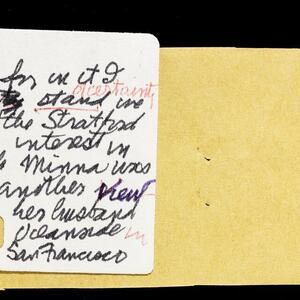 for in it I
stand we
the Stratford
interest in
Minna was
another
her husband
Oceanside in
San Francisco